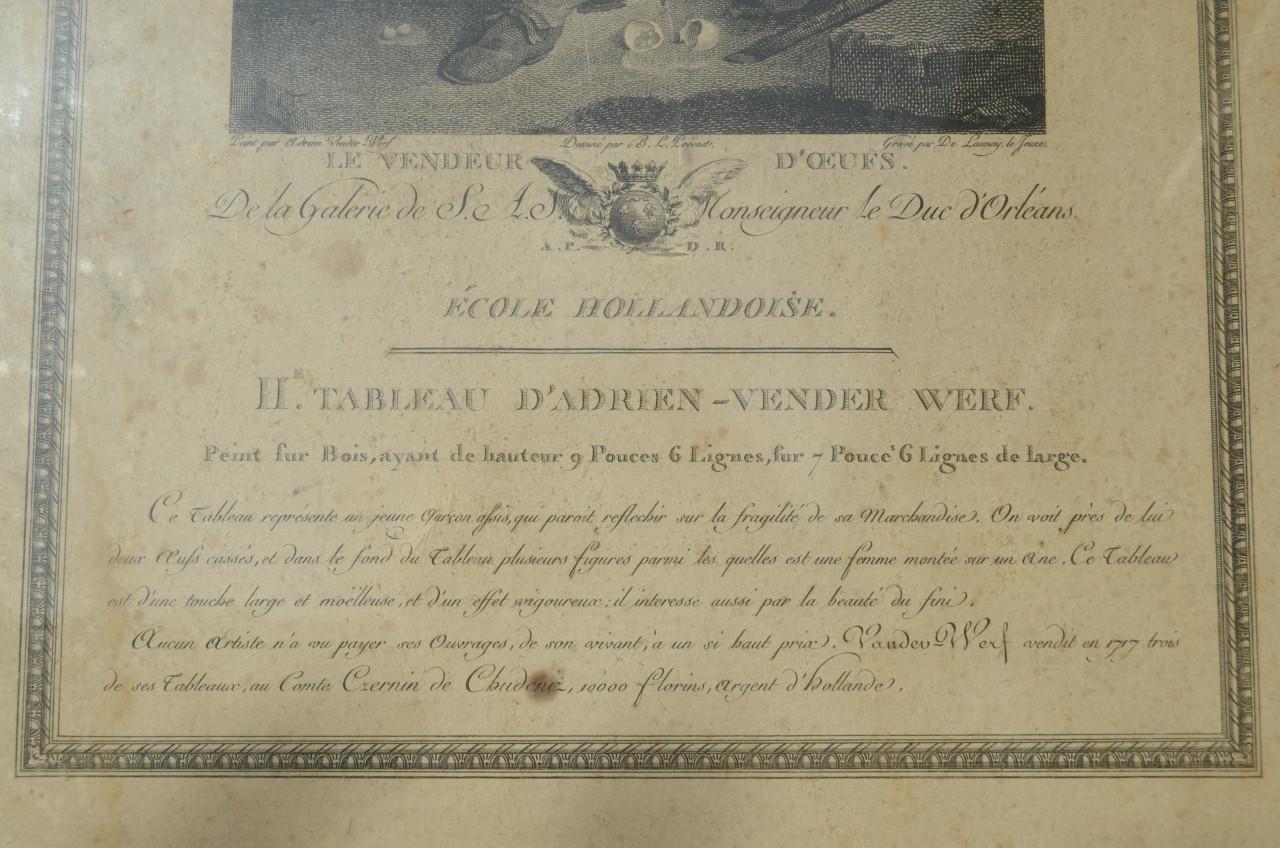 Peint par Adrien Vender Werf Dessiné par B. L. Prevost. Gravé par De Launay, le Jeune.
LE VENDEUR D'ŒUFS.
De la Galerie de S. A. S. Monseigneur le Duc d'Orléans.
A. P. D. R.
ÉCOLE HOLLANDOISE.
IIE. TABLEAU D'ADRIEN-VENDER WERF.
Peint sur Bois, ayant de hauteur 9 Pouces 6 Lignes, sur 7 Pouces 6 Lignes de large.
Ce Tableau représente un jeune Garçon assis, qui paroit reflechir sur la fragilité de sa Marchandise. On voit près de lui
deux Œufs cassés, et dans le fond du Tableau plusieurs figures parmi les quelles est une femme montée sur un Ane. Ce Tableau
est d'une touche large et moëlleuse, et d'un effet vigoureux: il interesse aussi par la beauté du fini.
Aucun Artiste n'a vu payer ses Ouvrages, de son vivant, à un si haut prix. Vander Werf vendit en 1717 trois
de ses Tableaux, au Comte Czernin de Chudeniz, 10000 florins, argent d'hollande.